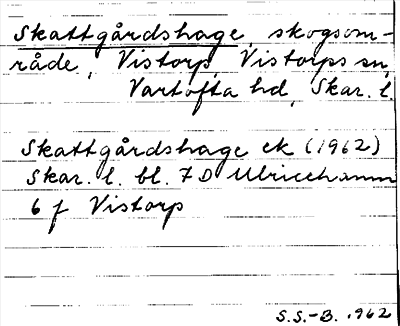 Skattgårdshage, skogsom-
råde, Vistorp, Vistorps sn,
Vartofta hd, Skar. l.
Skattgårdshage ek (1962)
Skar. l. bl. 7 D Ulricehamn
6 f Vistorp
S.S.-B. 1962